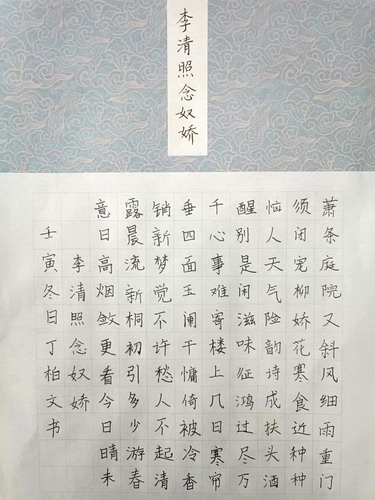 李清照念奴娇
萧条庭院又斜风细雨重门
须闭宠柳娇花寒食近种种
恼人天气险韵诗成扶头酒
醒别是闲滋味征鸿过尽万
千心事难寄楼上几日寒帘
垂四面玉阑干慵倚被冷香
销新梦觉不许愁人不起清
露晨流新桐初引多少游春
意日高烟敛更看今日晴未
李清照念奴娇
壬寅冬日丁柏文书